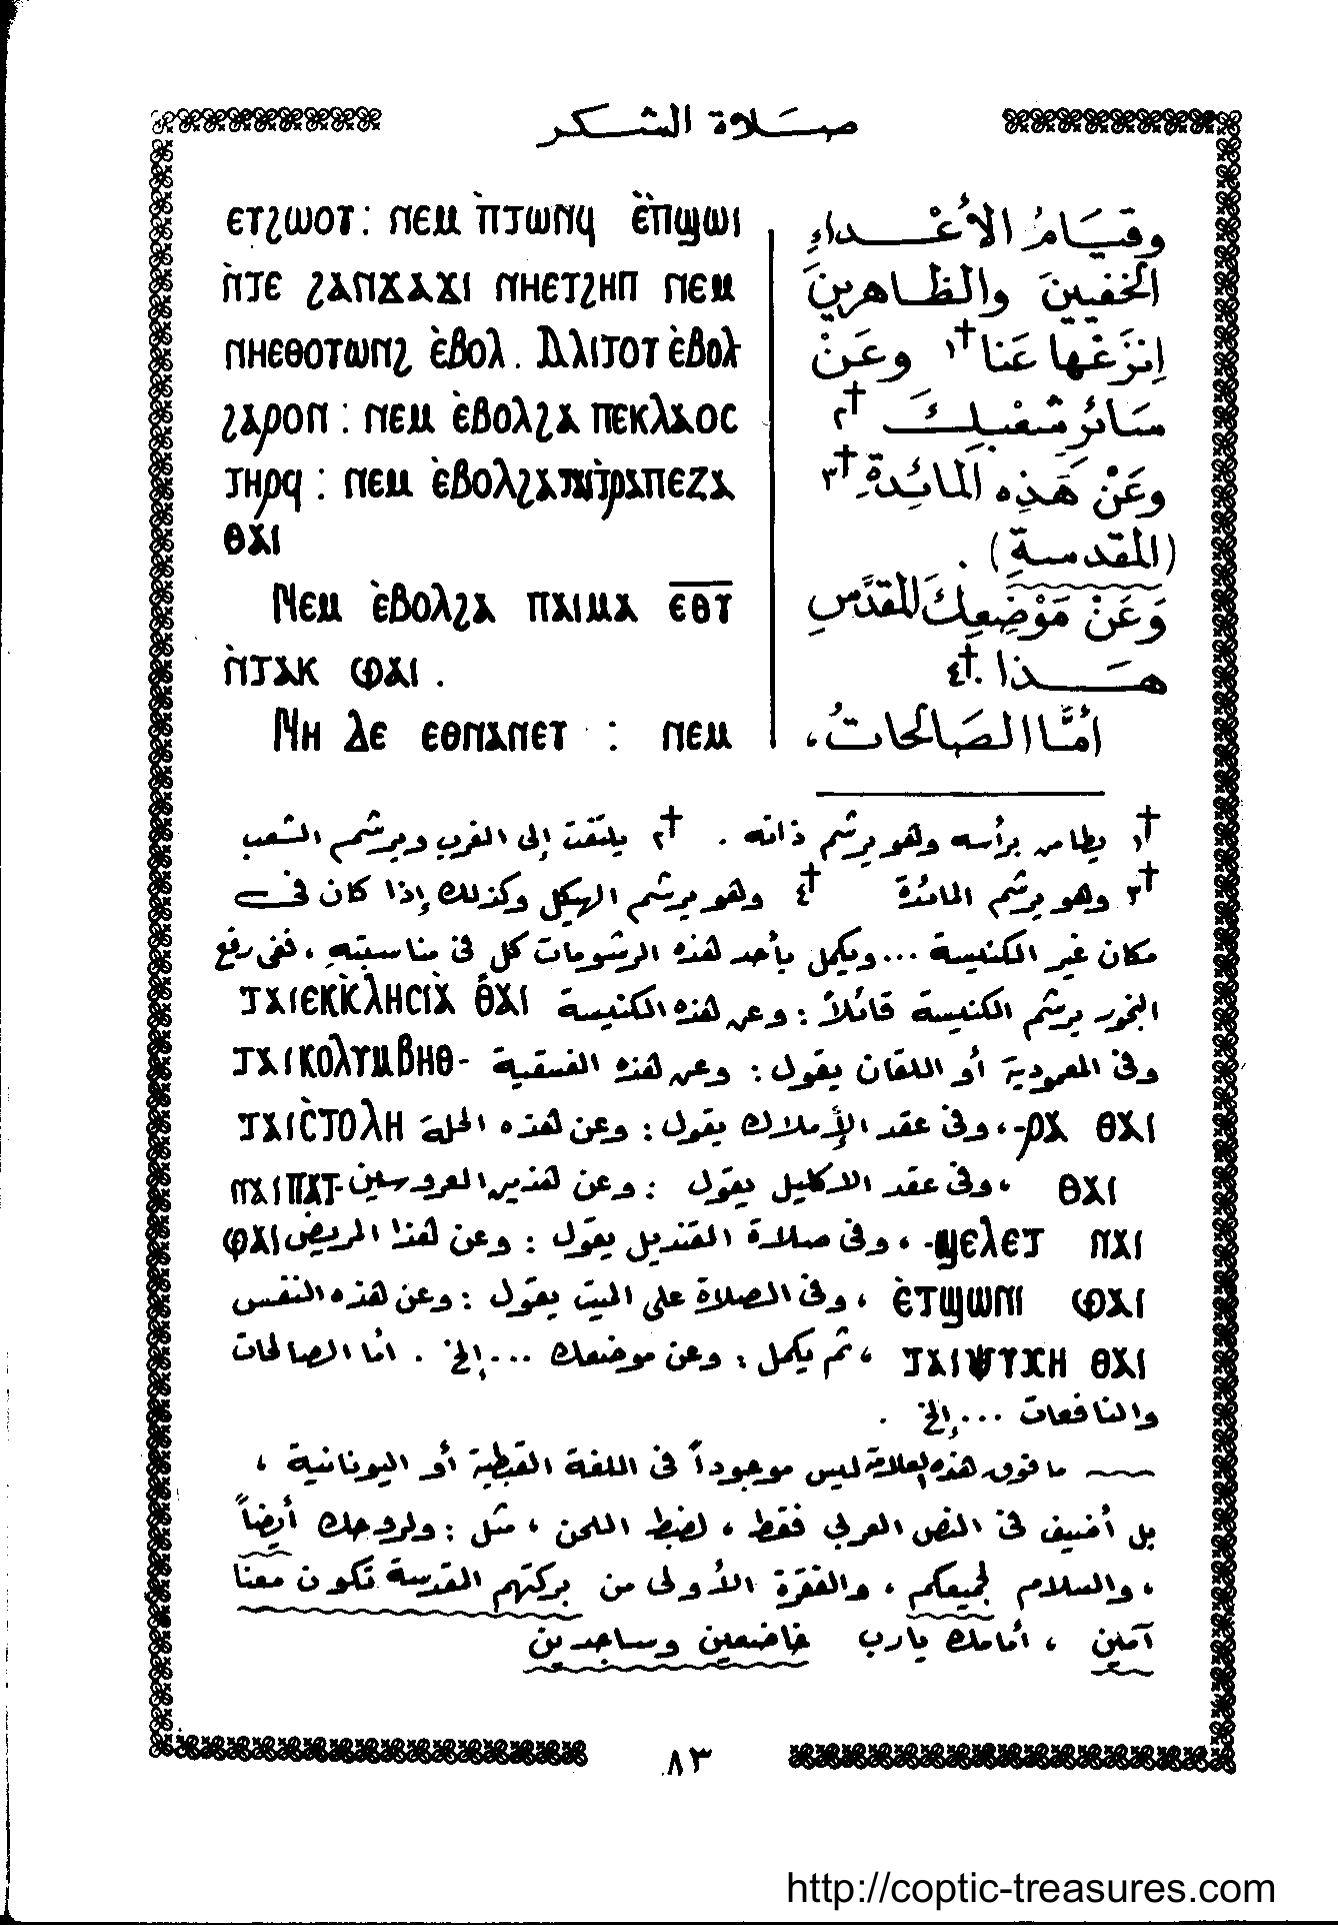 صلاة الشكر
ⲉⲧϩⲱⲟⲩ : ⲛⲉⲙ ⲡ̀ⲧⲱⲛϥ ⲉ̀ⲡ̀ϣⲱⲓ
ⲛ̀ⲧⲉ ϩⲁⲛϫⲁϫⲓ ⲛⲏⲉⲧϩⲏⲡ ⲛⲉⲙ
ⲛⲏⲉⲑⲟⲩⲱⲛϩ ⲉ̀ⲃⲟⲗ . Ⲁⲗⲓⲧⲟⲩ ⲉ̀ⲃⲟⲗ
ϩⲁⲣⲟⲛ : ⲛⲉⲙ ⲉ̀ⲃⲟⲗϩⲁ ⲡⲉⲕⲗⲁⲟⲥ
ⲧⲏⲣϥ : ⲛⲉⲙ ⲉ̀ⲃⲟⲗϩⲁ ⲧⲁⲓⲧ̀ⲣⲁⲡⲉⲍⲁ
ⲑⲁⲓ
Ⲛⲉⲙ ⲉ̀ⲃⲟⲗϩⲁ ⲡⲁⲓⲙⲁ ⲉ̅ⲑ̅ⲩ̅
ⲛ̀ⲧⲁⲕ ⲫⲁⲓ .
Ⲛⲏ ⲇⲉ ⲉⲑⲛⲁⲛⲉⲩ : ⲛⲉⲙ
وقيَامُ الأعْداءِ
الخفيينَ والظاهرينَ
اِنزَعْها عَنا †١ وعَنْ
سَائرِ شعْبِلِكَ †٢
وعَنْ هَذِه المائِدةِ †٣
(المقدسةِ) .
وَعَنْ مَوْضِعِكَ المقدَّسِ
هَذا .†٤
أمَّا الصَالحاتُ،
†١ يطامن برأسه وهو يرشم ذاته . †٢ يلتفت إلى الغرب ويرشم الشعب
†٣ وهو يرشم المائدة †٤ وهو يرشم الهيكل وكذلك إذا كان فى
مكان غير الكنيسة ... ويكمل بأحد هذه الرشومات كل فى مناسبتهِ ، ففى رفع
البخور يرشم الكنيسة قائلاً : وعن هذه الكنيسة ⲧⲁⲓⲉⲕⲕ̀ⲗⲏⲥⲓⲁ̀ ⲑⲁⲓ
وفى المعمودية أو اللقان يقول : وعن هذه الفسقية ⲧⲁⲓⲕⲟⲗⲩⲙⲃⲏⲑ-
ⲣⲁ ⲑⲁⲓ ، وفى عقد الأملاك يقول : وعن هذه الحلة ⲧⲁⲓⲥ̀ⲧⲟⲗⲏ
ⲑⲁⲓ ، وفى عقد الاكليل يقول : وعن هذين العروسين ⲛⲁⲓⲡⲁⲧ-
ϣⲉⲗⲉⲧ ⲛⲁⲓ ، وفى صلاة القنديل يقول : وعن هذا المريض ⲫⲁⲓ
ⲉ̀ⲧϣⲱⲛⲓ ⲫⲁⲓ ، وفى الصلاة على الميت يقول : وعن هذه النفس
ⲧⲁⲓⲯⲩⲭⲏ ⲑⲁⲓ ، ثم يكمل : وعن موضعك ... إلخ . أما الصالحات
والنافعات ... إلخ .
ما فوق هذه العلامة ليس موجوداً فى اللغة القبطية أو اليونانية ،
بل أضيف فى النص العربى فقط ، لضبط اللحن ، مثل : ولروحك أيضاً
، والسلام لجميعكم ، والفقرة الأولى من بركتهم المقدسة تكون معنا
آمين ، أمامك يارب خاضعين وساجدين
٨٣
http://coptic-treasures.com